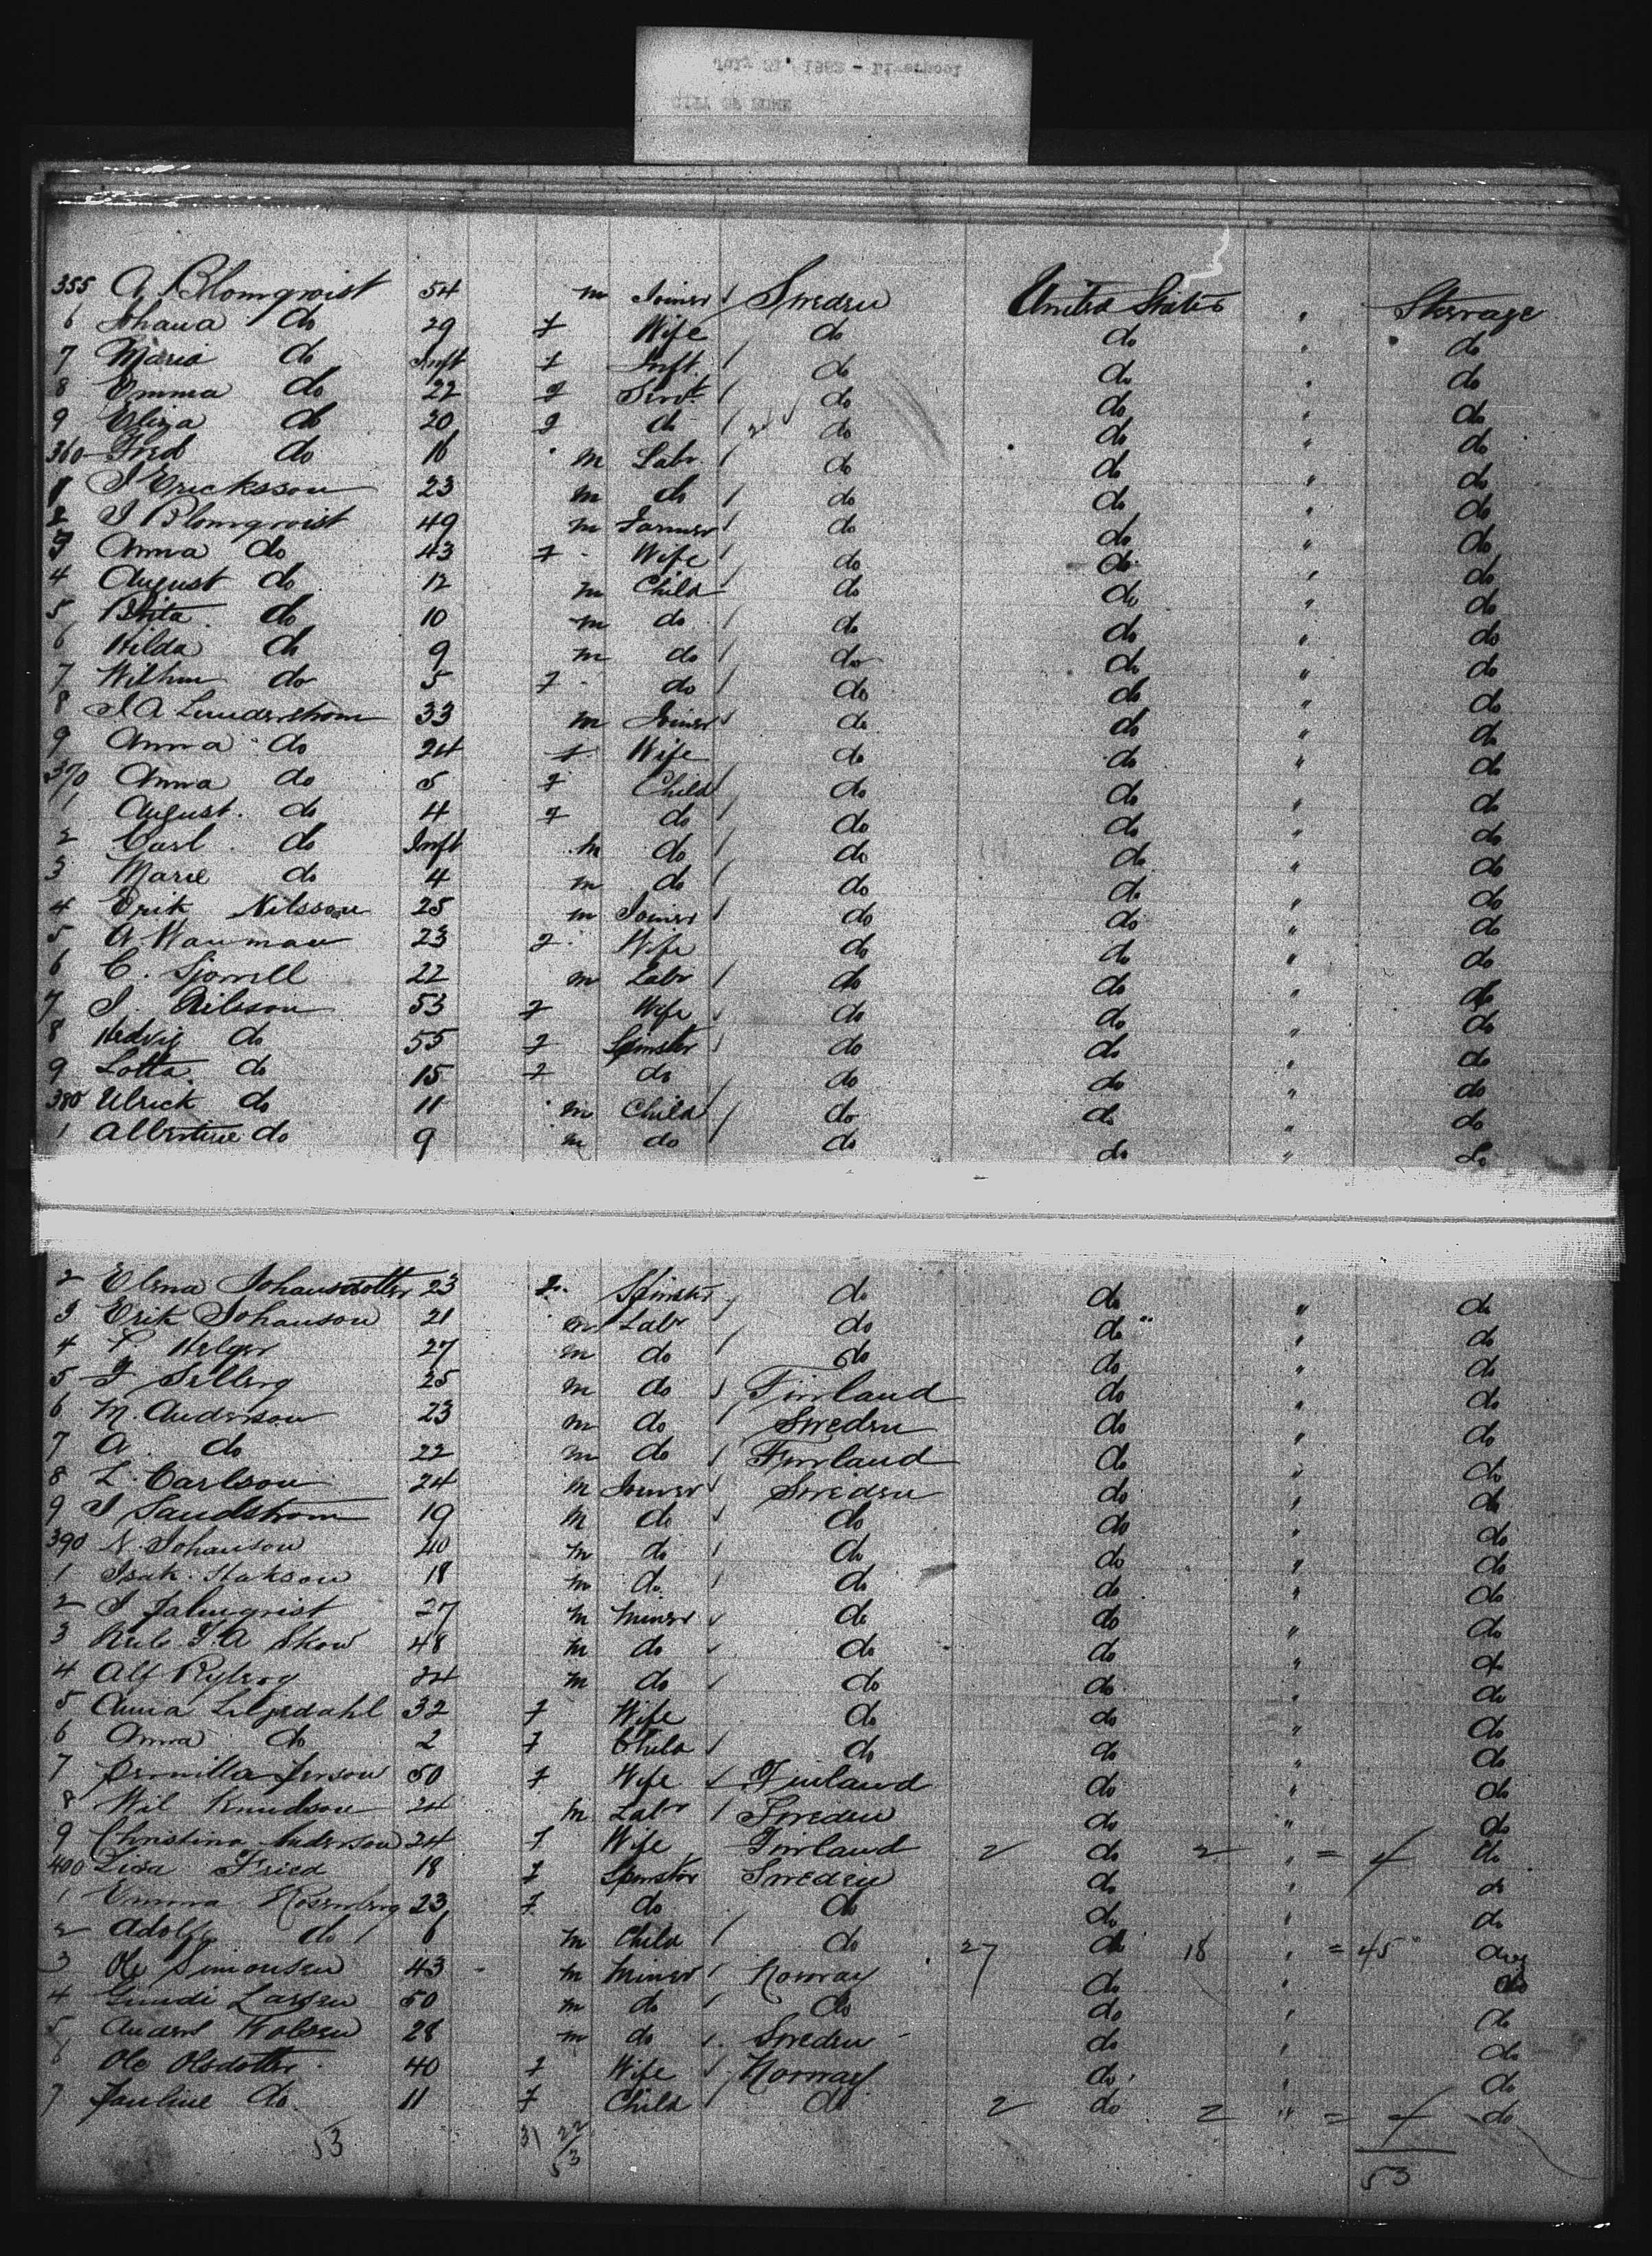 355 A. Blomqvist 54 m Joiner Sweden United States " Steerage
6 Johana do 29 f Wife do do " do
7 Maria do Inft f Inft. do do " do
8 Emma do 22 f Servt. do do " do
9 Eliza do 20 f do do do " do
360 Fred do 16 m Labr do do " do
1 J Ericksson 23 m do do do " do
2 J Blomqvist 49 m Farmer do do " do
3 Anna do 43 f Wife do do " do
4 August do 12 m Child do do " do
5 Brita do 10 m do do do " do
6 Hilda do 9 m do do do " do
7 Wilhm do 5 f do do do " do
8 J A 33 m Joiner do do " do
9 Anna do 24 f Wife do do " do
370 Anna do 5 f Child do do " do
1 August. do 4 f do do do " do
2 Carl. do Inft m do do do " do
3 Marie do 4 m do do do " do
4 Erik Nilsson 25 m Joiner do do " do
5 A Wauman 23 f Wife do do " do
6 C. 22 m Labr do do " do
7 J. Nilsson 53 f Wife do do " do
8 Hedvig do 55 f Spinster do do " do
9 Lotta. do 15 f do do do " do
380 Ulrick do 11 m Child do do " do
1 Albertine do 9 m do do do " do
2 Elena Johansdotter 23 f. Spinster do do " do
3 Erik Johanson 21 m Labr do do " do
4 Helger 27 m do do do " do
5 25 m do Finland do " do
6 M. Anderson 23 m do Sweden do " do
7 A. do 22 m do Finland do " do
8 L. Carlson 24 m Joiner Sweden do " do
9 J Sandstrom 19 m do do do " do
390 N. Johanson 40 m do do do " do
1 Isak. 18 m do. do do " do
2 J 27 m Miner do do " do
3 48 m do do do " do
4 Alf Ryberg 24 m do do do " do
5 Anna Liljedahl 32 f Wife do do " do
6 Anna do 2 f Child do do " do
7 Pernilla Person 50 f Wife Finland do " do
8 Wil Knudson 24 m Labr Sweden do " do
9 Christina Anderson 24 f Wife Finland 2 do 2 " = 4 do
400 Lisa Fried 18 f Spinster Sweden do " do
1 Emma Rosenberg 23 f do do do " do
2 Adolf do 6 m Child do 27 do 18 " = 45 do
3 Ole Simonsen 43 m Miner Norway do " do
4 Larsen 50 m do do do " do
5 28 m do Sweden do " do
6 Ole Olsdotter 40 f Wife Norway do " do
7 Pauline do 11 f Child do 2 do 2 " = 4 do
53 31 22 53 53